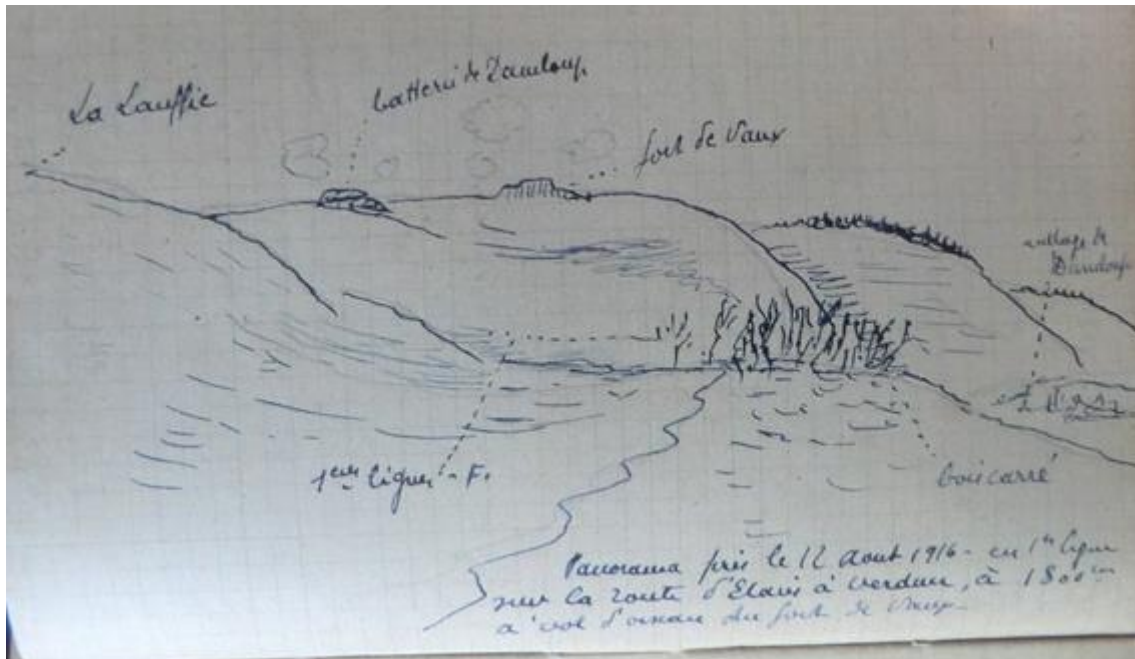 La Lauffie
batterie de Damloup
fort de Vaux
village de
Damloup
1ères lignes - F.
bois carré
Panorama pris le 12 Aout 1916 - en 1re ligne
sur la route d'Etain à Verdun, à 1800m
à vol d'oiseau du fort de Vaux